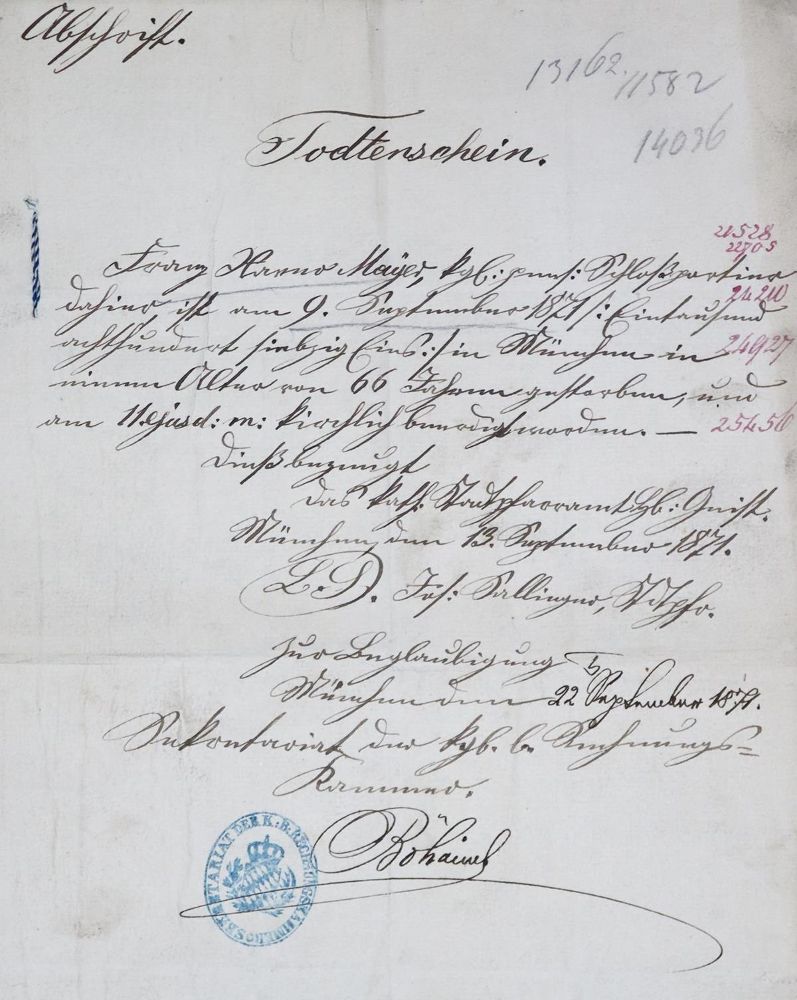 Abschrift.
13162. 11582
14036
Todtenschein.
21528
22705
Franz Mayer, kgl: pens: Schloßportier
24210
dahier, ist am 9. September 1871 /: Eintausend
achthundert siebzig Eins :/ in München in
24927
einem Alter von 66 Jahren gestorben, und
am 11. ejusd: m: kirchlich beerdigt worden. —
25456
Dieß bezeugt
das kath: Stadtpfarramt Hl: Geist.
München, den 13. September 1871.
L. S. Jos: Sallinger, Stdtpfr.
Zur Beglaubigung
München den 22 September 1871.
Sekretariat der kgl. b. Rechnungs=
Kammer.
SEKRETARIAT DER K. B. RECHNUNGSKAMMER